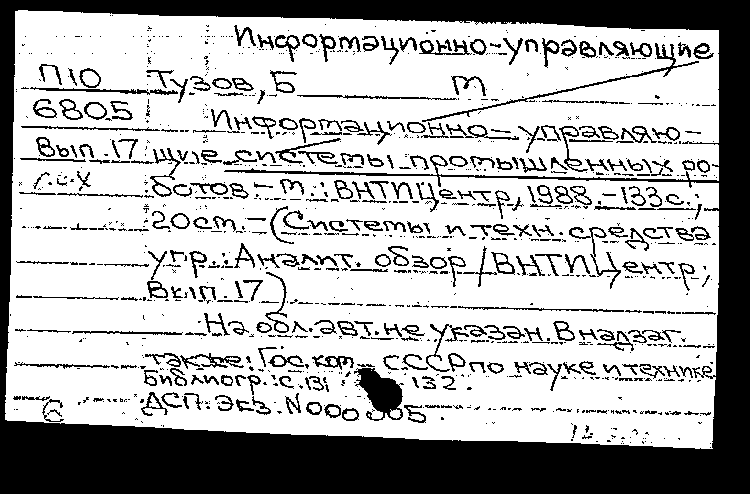 Информационно-управляющие
П10 Тузов, Б М
6805 Информационно-управляю-
Вып.17 щие системы промышленных ро-
ботов.-М.:ВНТИЦентр, 1988.-133с.;
20см.-(Системы и техн. средства
упр.: Аналит. обзор / ВНТИЦентр;
Вып.17).
На обл. авт. не указан. В надзаг.
также: Гос. ком. СССР по науке и технике
Библиогр.: с.131 132.
ДСП. Экз. N000005.
6